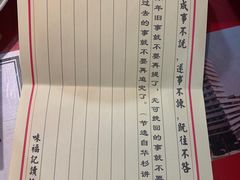 成事不說，遂事不諫，既往不咎
年旧事就不要再提了，无可挽回的事就不要再
过去的事就不要再追究了。（节选自华杉讲
味福記讀